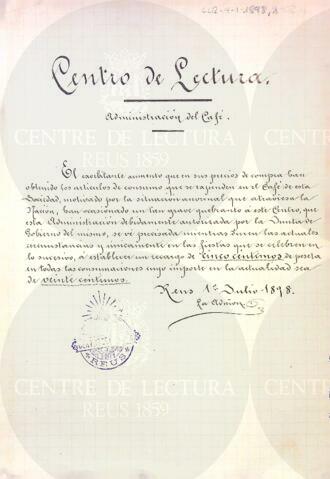 CLR-4-1-1898,1
Centro de Lectura.
Administración del Café.
El exorbitante aumento que en sus precios de compra han
obtenido los artículos de consumo que se expenden en el Café de esta
Sociedad, motivado por la situación anormal que atraviesa la
Nación, han ocasionado un tan grave quebranto á este Centro, que
esta Administración debidamente autorizada por la Junta de
Gobierno del mismo, se vé precisada mientras duren las actuales
circunstancias y únicamente en las fiestas que se celebren en
lo sucesivo, á establecer un recargo de cinco céntimos de peseta
en todas las consumaciones cuyo importe en la actualidad sea
de veinte céntimos.
Reus 1º Julio 1898.
La Admon
REUS
CENTRE DE LECTURA
REUS 1859
CENTRE DE LECTURA
REUS 1859